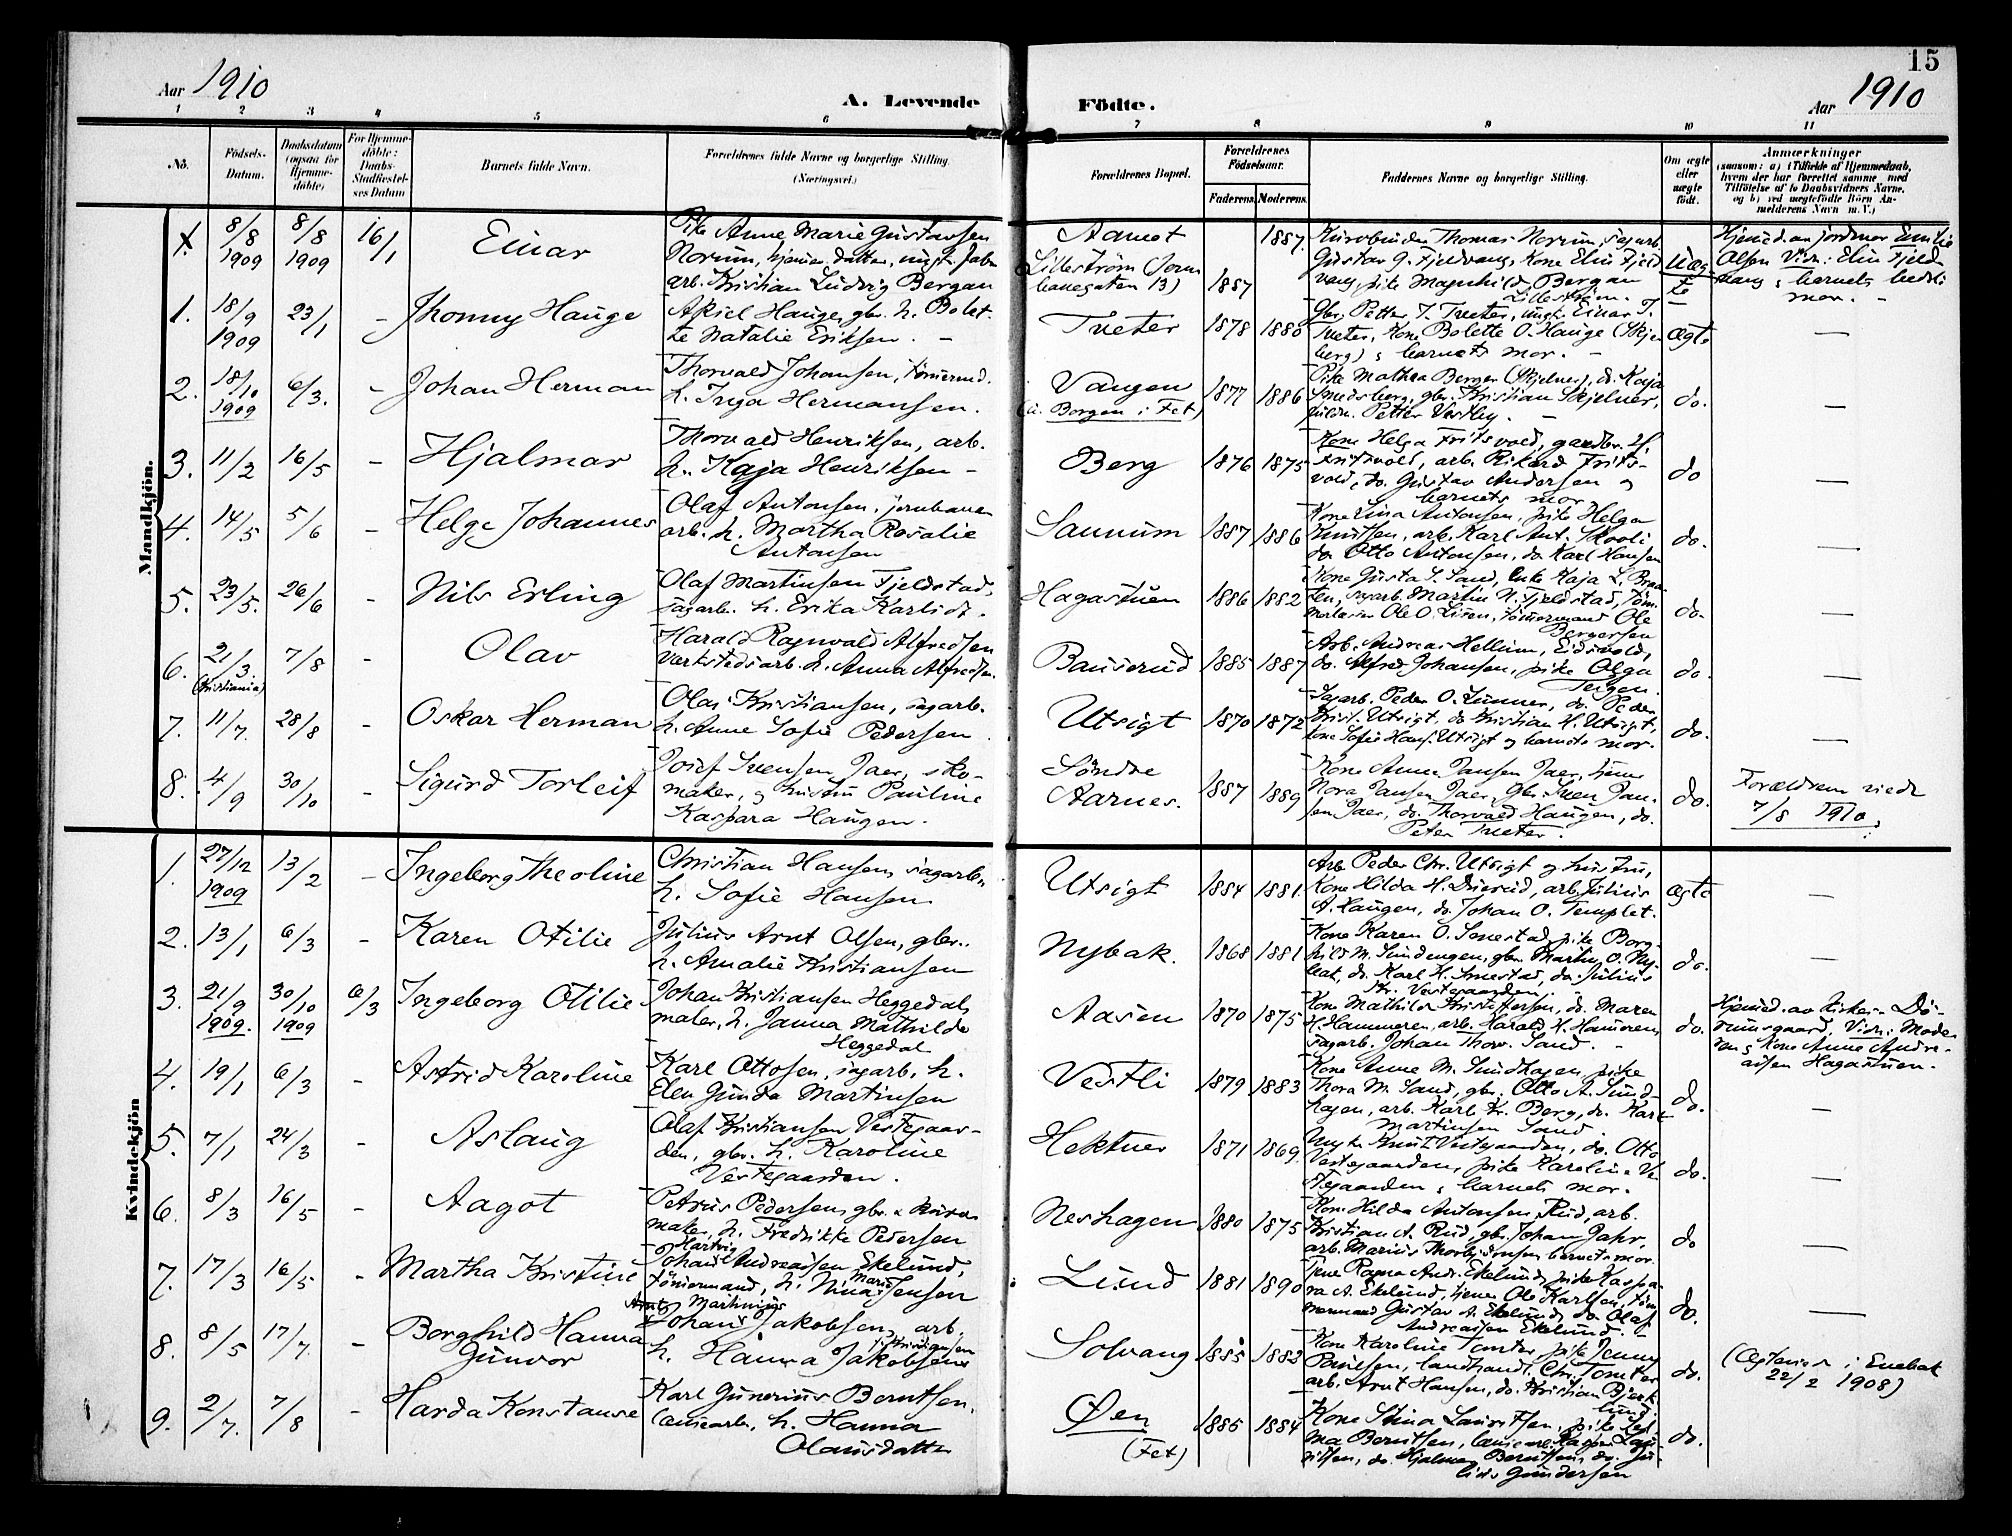 15
Aar 1910
A. Levende Födte.
Aar 1910
1 2 3 4 5 6 7 8 9 10 11
No.
Födsels-Datum.
Daabsdatum (ogsaa for Hjemme-döbte)
For Hjemme-döbte: Daabs-Stadfæstelses Datum
Barnets fulde Navn.
Forældrenes fulde Navne og borgerlige Stilling. (Næringsvei.)
Forældrenes Bopæl.
Forældrenes Födselsaar.
Faderens. Moderens.
Faddernes Navne og borgerlige Stilling.
Om ægte eller uægte födt.
Anmærkninger
(saasom: a) i Tilfælde af Hjemmedaab, hvem der har forrettet samme med Tilföielse af to Daabsvidners Navne, og b) ved uægtefödte Börn Anmelderens Navn m. V.)
Mandkjön.
8/8 1909 8/8 1909 16/1 Einar
Pike Anne Marie Gustavsen
Norum, hjemmev. datter, ungk. fabr.
arb. Kristian Ludvig Bergan
Aamot
Lilleström (Jernbanegaten 13)
1887 1887
Kurvbinder Thomas Norum, sagarb.
Gustav G. Fjeldvang, Kone Elin Fjeld
vang, pike Magnhild Bergan
Lilleström.
Uægte
Hjemmed. av jordmor Emilie
Olsen Vidn: Elin Fjeld
vang & barnets bedste
mor. -
1. 18/9 1909 23/1 - Jhonny Hauge
Aksel Hauge, gbr. h. Bolet-
te Natalie Eriksen. -
Tveter 1878 1880
Gbr. Petter J. Tveter, ungk. Einar J.
Tveter, Kone Bolette O. Hauge (Skje
berg) & barnets mor. -
ægte -
2. 18/10 1909 6/3. - Johan Herman
Thorvald Johansen, tömmermd.
h. Inga Hermansen.
Vangen
(Borgen i Fet)
1877 1886
Pike Mathea Berger (Skjelner), do. Kaja
Smedsberg, gbr. Kristian Skjelner,
Petter Vestby. -
do. -
3. 11/2 16/5 - Hjalmar
Thorvald Henriksen, arb.
h. Kaja Henriksen -
Berg 1876 1875
Kone Helga Fritsvold, gaardbr. H.
Fritsvold, arb. Rikard Frits-
vold, do. Gustav Andersen og
barnets mor
do -
4. 14/5 5/6 - Helge Johannes
Olaf Antonsen, jernbane
arb. h. Martha Rosalie
Antonsen
Saunum 1887 1886
Kone Lina Antonsen, pike Helga
Knutsen, arb. Karl Ant. Skooli
do. Otto Antonsen, do. Karl Hansen
do. -
5. 23/5. 26/6 - Nils Erling
Olaf Martinsen Fjeldstad,
sagarb. h. Erika Karlsd.
Hagastuen 1886 1882
Kone Gusta S. Sand, enke Kaja L. Braa
ten, sagarb. Martin N. Fjeldstad, töm
Ole O. Lisen, tömmermand Ole
Bergersen
do. -
6. 21/3. (Kristiania) 7/8 - Olav
Harald Ragnvald Alfredsen
værkstedsarb. h. Anna Alfredsen.
Bauserud 1885 1887
Arb. Andreas Hellum, Eidsvold,
do. Alfred Johansen, pike Olga
Tergen.
do. -
7. 11/7. 28/8 - Oskar Herman
Olaf Kristiansen, sagarb.
h. Anne Sofie Pedersen
Utsigt 1870 1872
Sagarb. Peder O. Linner, do. Peder
Krist. Utsigt, do Kristian H. Utsigt,
kone Sofie Hans. Utsigt og barnets mor.
do. -
8. 4/9 30/10 - Sigurd Torleif
Josef Svensen Jaer, sko-
maker, og hustru Pauline
Kaspara Haugen.
Söndre
Aarnes. 1887 1889
Kone Anna Jansen Jaer,
Nora Jansen Jaer, gbr. Sven Jan-
sen Jaer, do. Thorvald Haugen, do.
Peter Tveter.
do.
Forældrene viede
7/8 1910.
Kvindekjön
1. 27/12 1909 13/2 - Ingeborg Theoline
Christian Hansen, sagarb.
h. Sofie Hansen.
Utsigt 1884 1881.
Arb. Peder Chr. Utsigt og hustru,
Kone Hilda H. Duerud, arb. Julius
A. Haugen, do. Johan O. Templet.
ægte -
2. 13/1 6/3 - Karen Otilie
Julius Arnt Olsen, gbr.
h. Amalie Kristiansen
Nybak. 1868 1881
Kone Karen O. Senestad, pike Borg-
hild M. Sundengen, gbr. Martin O. Ny-
bak, do. Karl H. Senestad, do. Julius
Kr. Vestgaarden
do. -
3. 21/9 1909. 30/10 1909 6/3 Ingeborg Otilie
Johan Kristiansen Heggedal,
maler, h. Janna Mathilde
Heggedal
Aasen 1870 1875
Kone Mathilde Kristoffersen, do. Maren
H. Hammeren, arb. Harald H. Hammeren,
sagarb. Johan Thorv. Sand. -
do.
Hjemmed. av Kirkes. Dö-
rumsgaard, Vidn: Mode
ren & Kone Anne Andre-
assen Hagastuen.
4. 19/1 6/3 - Astrid Karoline
Karl Ottosen, sagarb. h.
Elen Gunda Martinsen
Vestli 1879 1883
Kone Anne M. Sundhagen, pike
Thora M. Sand, gbr. Otto A. Sund-
hagen, arb. Karl Kr. Berg, do. Karl
Martinsen Sand.
do. -
5. 7/1 24/3 - Aslaug
Olaf Kristiansen Vestgaar-
den, gbr. h. Karoline
Vestgaarden.
Hektner 1871 1869.
Ungk. Knut Vestgaarden, do. Otto
Vestgaarden, pike Karoline Ve
stgaarden & barnets mor.
do. -
6. 8/3 16/5 - Aagot
Petrus Pedersen, gbr. &
maker, h. Fredrikke Pedersen
Neshagen 1880 1875
Kone Hilda Antonsen Rud, arb.
Kristian A. Rud, gbr. Johan Jahr,
arb. Marius Thorbjörnsen, barnets mor.
do -
7. 17/3 16/5 - Martha Kristine
Hartvig
Johan Andreassen Ekelund,
tömmermand, h. Nina Marie Jensen
Lund 1881 1890
Tjene Ragna And. Ekelund, pike Kaspa-
ra A. Ekelund, tjener Ole Karlsen, töm
mermand Gustav A. Ekelund, do Olaf
Andreassen Ekelund.
do. -
8. 8/5 17/7. - Borghild Hanna
Gunvor
Arnt Martinius
Johan Jakobsen, arb
h. Hanna Jakobsen Kristiansen
Solvang 1885 1883
Kone Karoline Tomter, pike Jenny
Paulsen, landhandl. Chr. Tomter
arb. Arnt Hansen, do. Kristian Bjerk
lund
do.
(Ægteviet i Enebak
22/2 1908)
9. 2/7. 7/8 - Harda Konstanse
Karl Gunerius Berntsen,
h. Hanna
Olausdatter
Øen
(Fet)
1885 1884
Kone Stina Lauritsen, pike Sel-
ma Berntsen, Lau-
ritsen, do. Hjalmar Berntsen, do. Ju-
lius Gundersen
do.